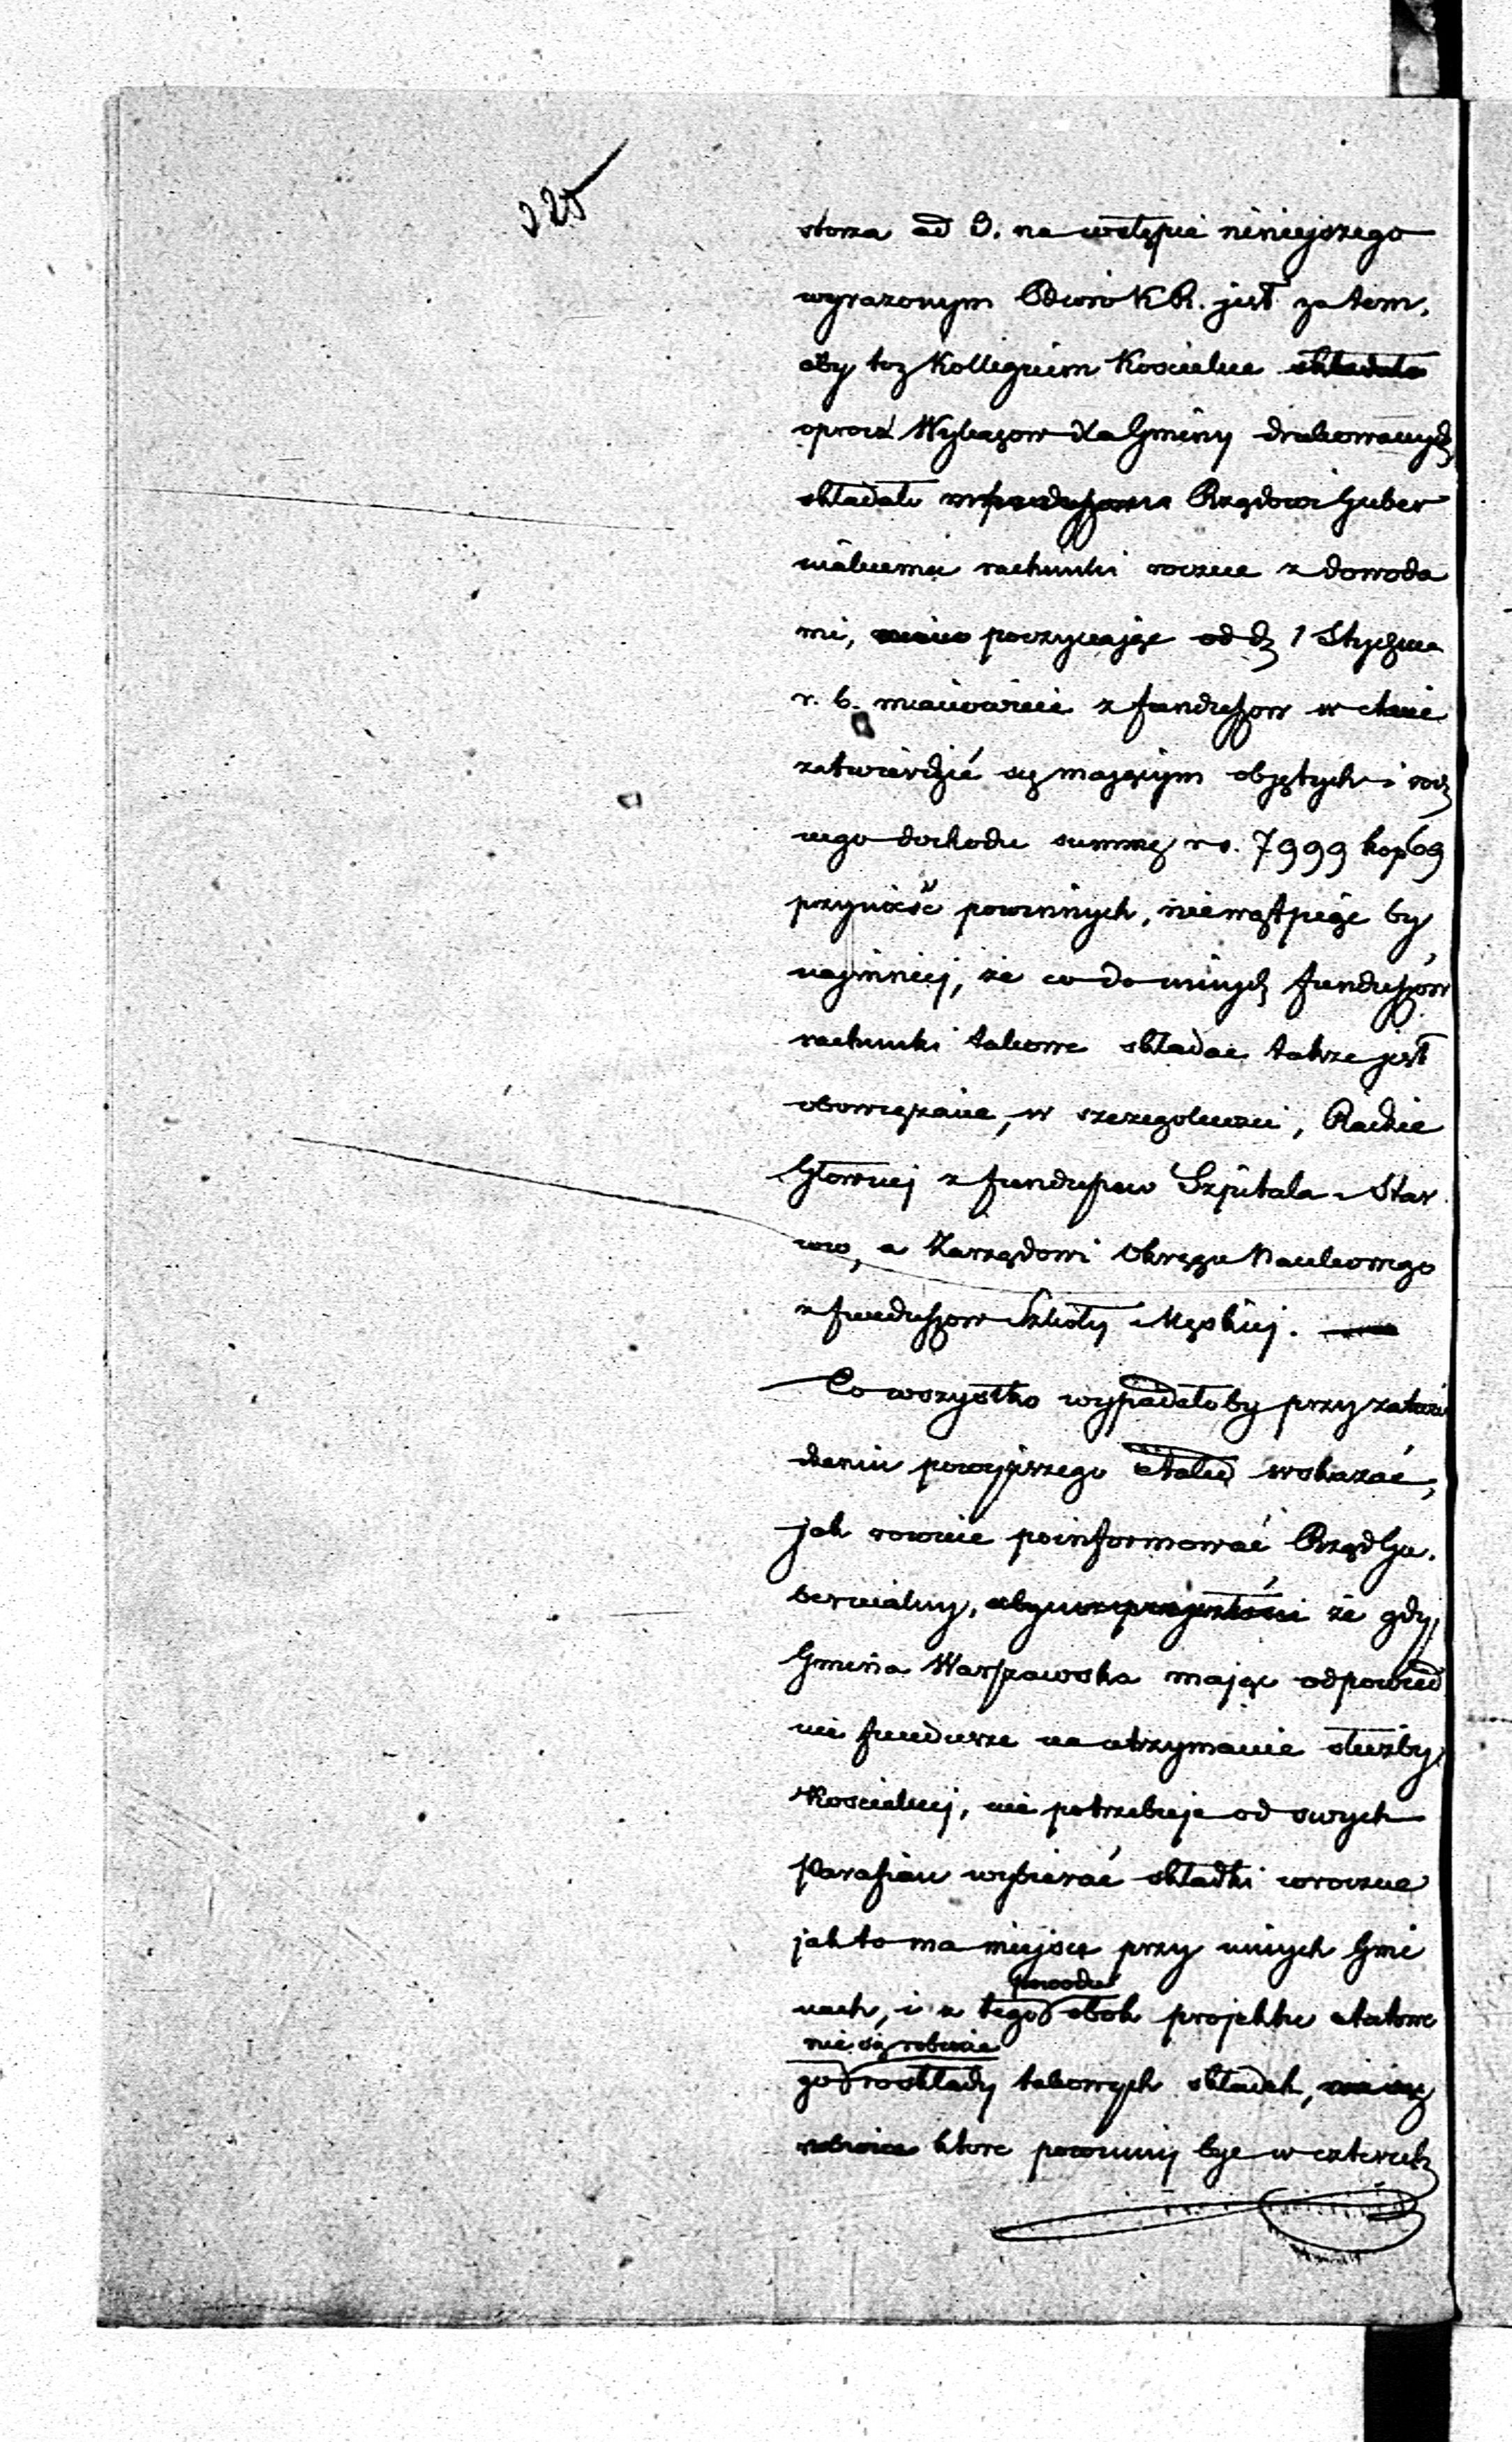 225
storza ad 3. na wstępie niniejszego
wyrazonym Odwoł K R. jest za tem,
aby toz Kollegium Koscielne składało
oprocz Wykazow dla Gminy drukowanych
składało Rządowi Guber
nialnemu rachunki roczne z dowoda
mi, poczynając od d 1 Stycznia
r. b. mianowicie z funduszow w etacie
zatwierdzić się mającym objętych i rocz
nego dochodu summę rs. 7999 kop 69
przynieść powinnych, niewątpiąc by
najmniej, że co do innych funduszow
rachunki takowe składac takze jest
obowiązane, w szczegolnosci, Radzie
Głownej z funduszow Szpitala i Star
cow, a Zarządowi Okręgu Naukowego
z funduszow Szkoły Męskiej.
Co wszystko wypadałoby przy zatwier
dzeniu powyższego etatu wskazać,
jak rownie poinformować Rząd Gu.
bernialny, aby w przyszłości że gdy
Gmina Warszawska mając odpowied
nie fundusze na utrzymanie służby
Koscielnej, nie potrzebuje od swych
Parafian wybierać składki coroczne
jak to ma miejsce przy innych Gmi
powodu
nach, i z tego obok projektu etatowe
nie są robione
go rozkłady takowych składek, nie są
robione ktore powinny byc w czterech